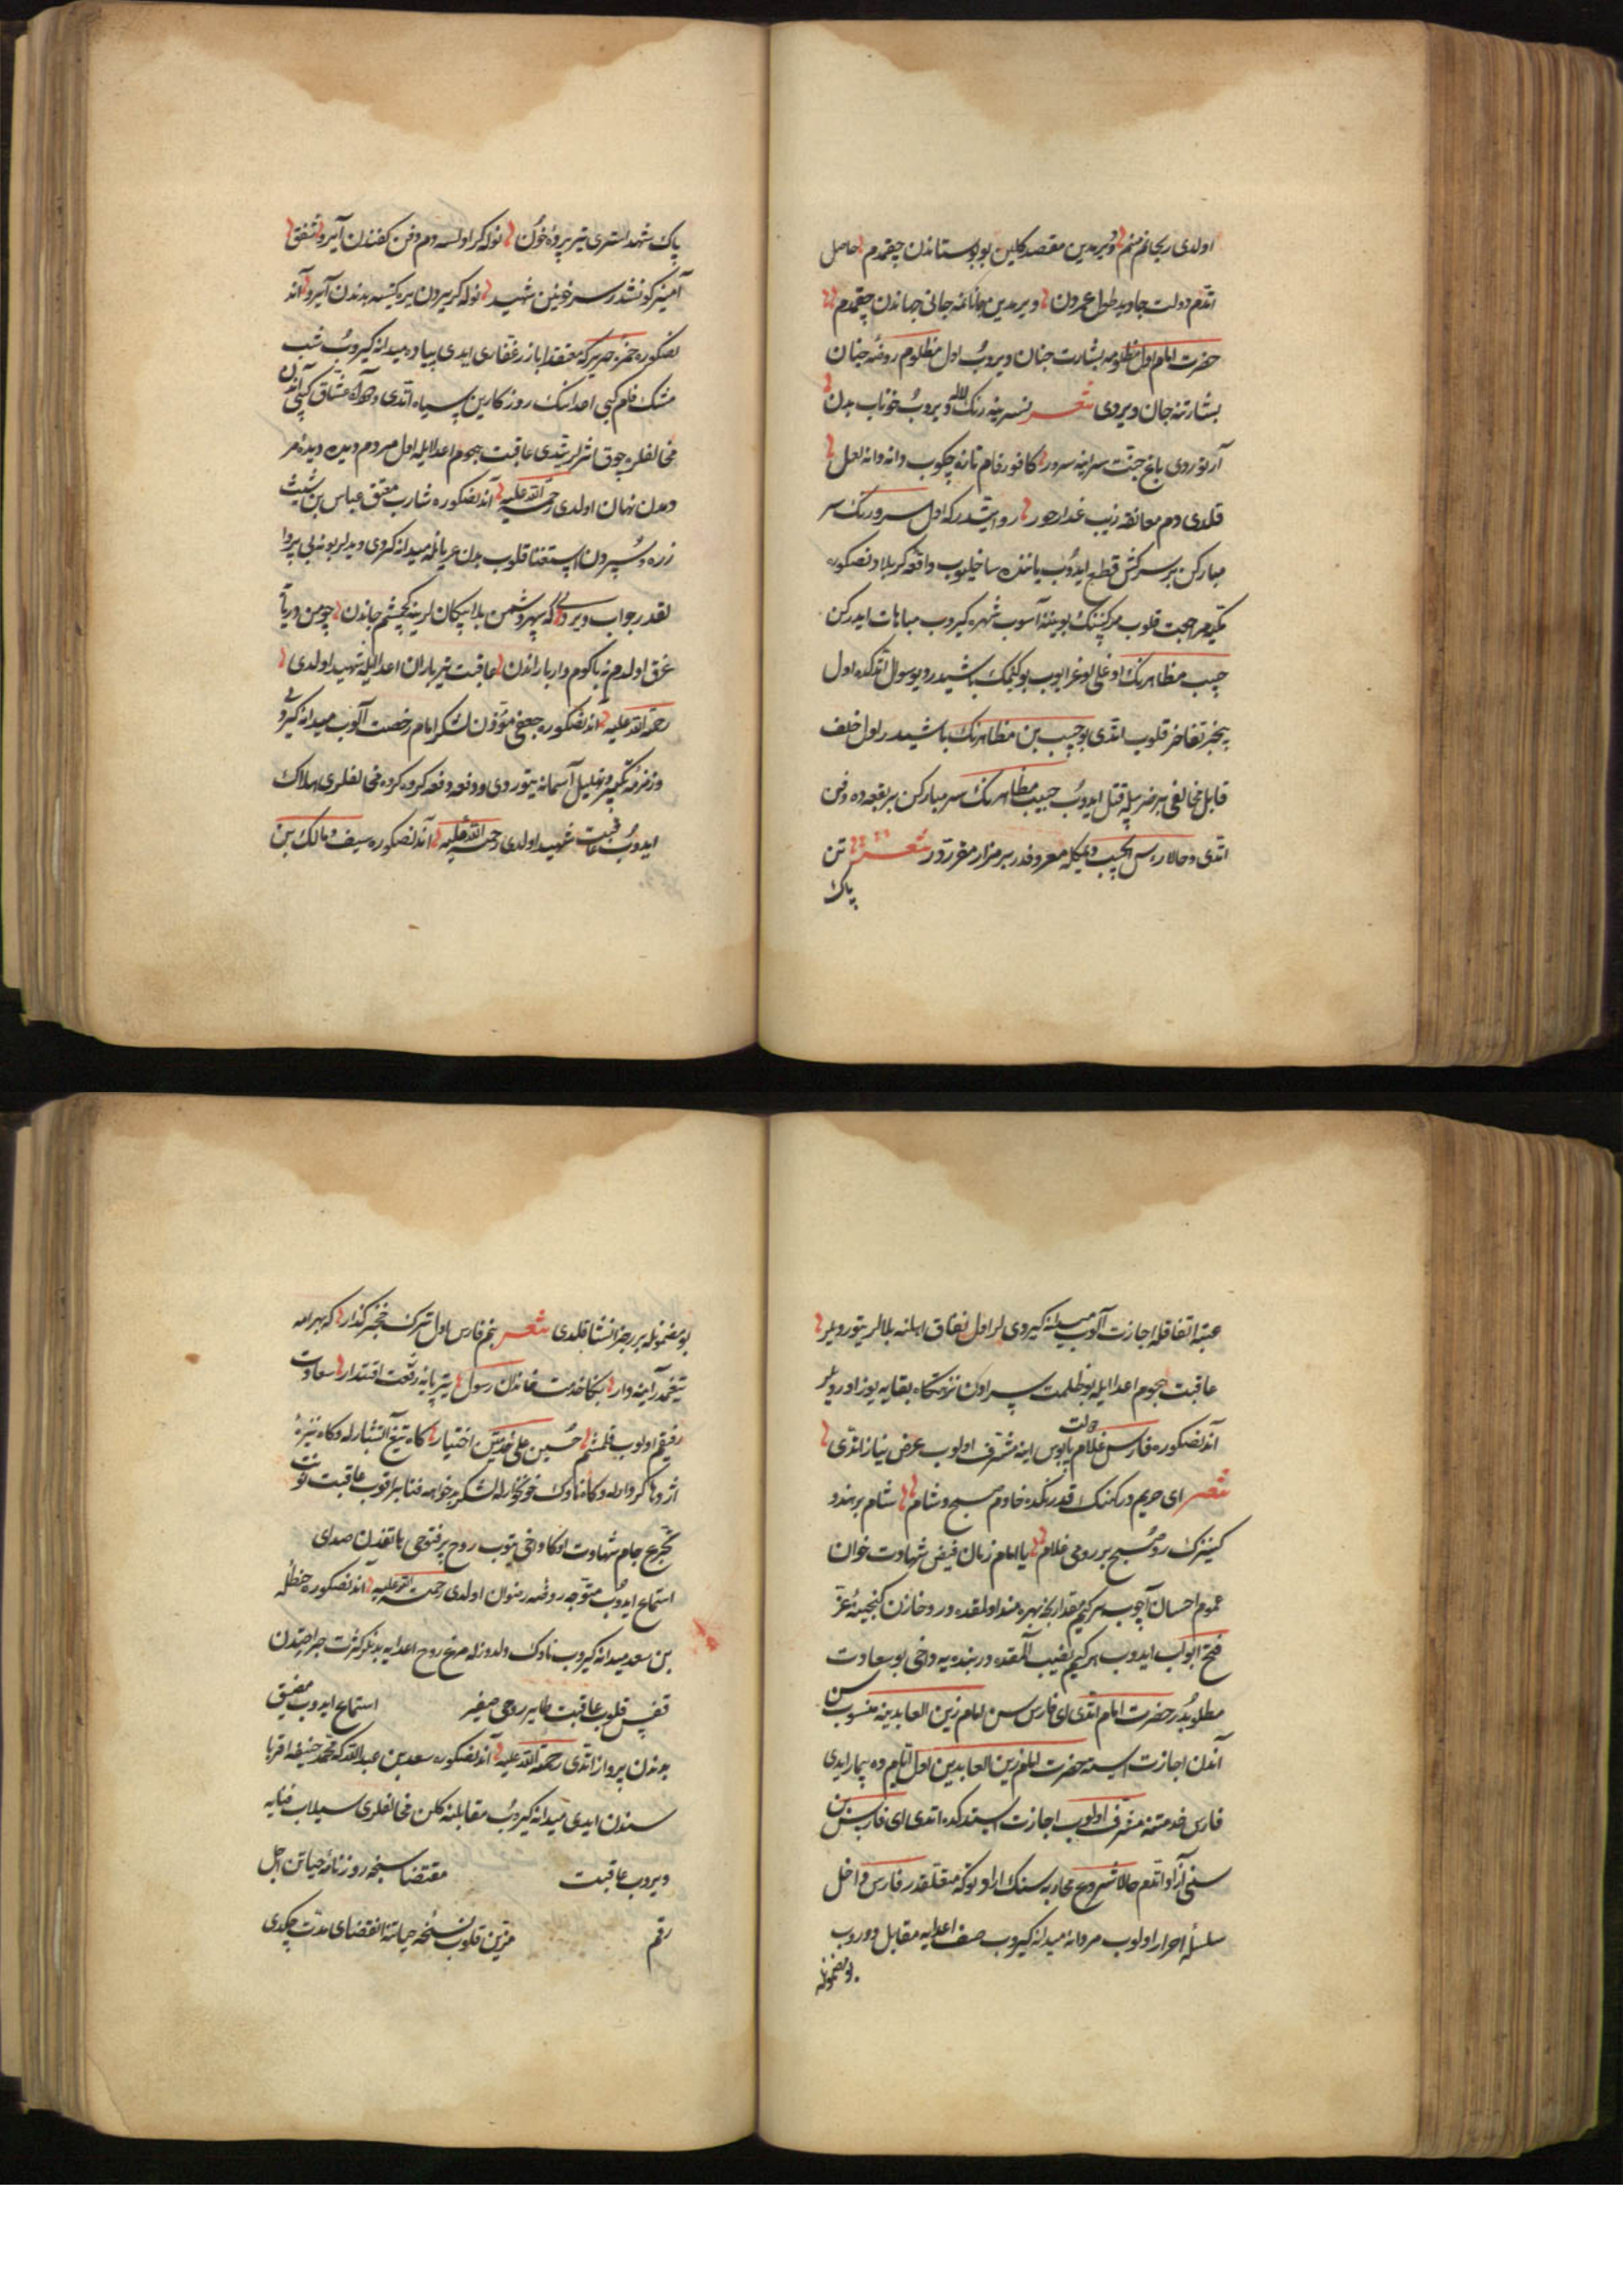 اولدی ریحانم منم ویرمدین مقصد کلین بو بوستاندن چقمدم حاصل
اتدم دولت جاوید طول عمردن ویرمدین جانانمه جانی جهاندن چقمدم
حضرت امام اول مظلومه بشارت جنان ویروب اول مظلوم روضه جنان
بشارتنه جان ویردی شعر نسرینه رنک لاله ویروب خوناب بدن
آرتوردی باغ جنت سراینه سرور کافورفام تارنه چکوب دانه دانه لعل
قلدی دم معانقه زیب عذار حور روایتدر که اول سرورنک سر
مبارکن بر سرکش قطع ایدوب یاننده ساخلیوب واقعه کربلادنصکره
مکیه مراجعت قلوب مرکبنک بویننه آسوب شهره کیروب مباهات ایدرکن
حبیب مظاهرنک اوغلی اوغرایوب بو کیمک باشیدر دیو سوال اتدکده اول
بیخبر تفاخر قلوب اتدی بو حبیب بن مظاهرنک باشیدر اول خلف
قابل مخالفی بر ضربیله قتل ایدوب حبیب مظاهرنک سر مبارکن بر بقعه ده دفن
اتدی و حالا راس الحبیب دیمکله معروفدر بر مزار مقرردر شعر تن
پاک
پاک شهدا ستری تیر پرده خون نوله کر اولسه دم دفن کفندن آیرو شفق
آمیز کونشدر سر خونین شهید نوله کر بیرون یره یتسه بدندن آیرو آند
نصکره حمزه حریر که معتقد اباذر غفاری ایدی پیاده میدانه کیروب شب
مشک فام کبی اعدانک روزکارین سیاه اتدی و آه عشاق کبی اندن
مخالفلره چوق شرلر یتدی عاقبت هجوم اعدا ایله اول مردم دیده دیده مر
دمدن نهان اولدی رحمة الله علیه آندنصکره شارب معتق عباس بن شبیث
زره و سپردن استغنا قلوب بدن عریانله میدانه کیردی دیدیلر بو نه بی پروا
لقدر جواب ویردی که سپهر دشمن بلا پیکان لرینه کچمشم جاندن چو من دریایه
غرق اولدم نه باکوم وار باراندن عاقبت تیرباران اعدا ایله شهید اولدی
رحمة الله علیه آندنصکره جعفی مؤذن لشکر امام رخصت آلوب میدانه کیردی
وزمزمه تکبیر و تهلیل آسمانه یتوردی و دفعه دفعه کروه کروه مخالفلری هلاک
ایدوب عاقبت شهید اولدی رحمة الله علیه آندنصکره سیف و مالک بن
عبد اتفاقله اجازت آلوب میدانه کیردی لر اول نفاق اهلنه بلالر یتوردیلر
عاقبت هجوم اعدا ایله بو ظلمت سرادن نزهتکاه بقایه یوز اوردیلر
آندنصکره فارس غلام پابوس دولت اینه مشرف اولوب عرض نیاز اتدی
شعر ای حریم درکهنک قدرنده خادم صبح و شام شام بر هندو
کنیزک روم صبح بر رومی غلام یا امام زمان فیض شهادت خوان
عموم احسان آچوب هر کیم مقدارنجه بهره مند اولمقده در و خازن کنجینه عز
فتح ابواب ایدوب هر کیم نصیب آلمقده در بنده یه دخی بو سعادت
مطلوبدر حضرت امام اتدی ای فارس سن امام زین العابدینه منسوب سن
آندن اجازت استه حضرت امام زین العابدین اول ایام ده بیمار ایدی
فارس خدمتنه مشرف اولوب اجازت استدکده اتدی ای فارس بن
سنی آزاد اتدم حالا شروع محاربه سنک ارادتوکه متعلقدر فارس داخل
سلسله احرار اولوب مردانه میدانه کیروب صف اعدایه مقابل دوروب
بو مضمونله
بو مضمونله بر رجز انشا قلدی شعر بنم فارس اول ترک خنجر کذار که بهرام
تیغمدر آینه دار بکا خدمت خاندان رسول یتر پایه رفعت اقتدار سعادت
رفیقم اولوب قلمشم حسین علی خدمتین اختیار کاه تیغ آتشبارله و کاه نیزه
اژدها کردارله و کاه ناوک خونخوارله لشکر بدخواهه فنا براقوب عاقبت نوبت
تجرع جام شهادت اوکا دخی یتوب روح پرفتوحی هاتفدن صدای
استماع ایدوب متوجه روضه رضوان اولدی رحمة الله علیه آندنصکره حنظله
بن سعد میدانه کیروب ناوک دلدوزله مرغ روح اعدایه بدنلر کثرت جراحتدن
قفس قلوب عاقبت طایر روحی صفیر استماع ایدوب مضیق
بدندن پرواز اتدی رحمة الله علیه آندنصکره سعد بن عبد الله که محمد حنیفه اقربا
سندن ایدی میدانه کیروب مقابلنه کلن مخالفلری سیلاب فنایه
ویروب عاقبت مقتضاسنجه روزنامه حیاتن اجل
رقم مزین قلوب نسخه حیاتنه انقضای مدت چکدی